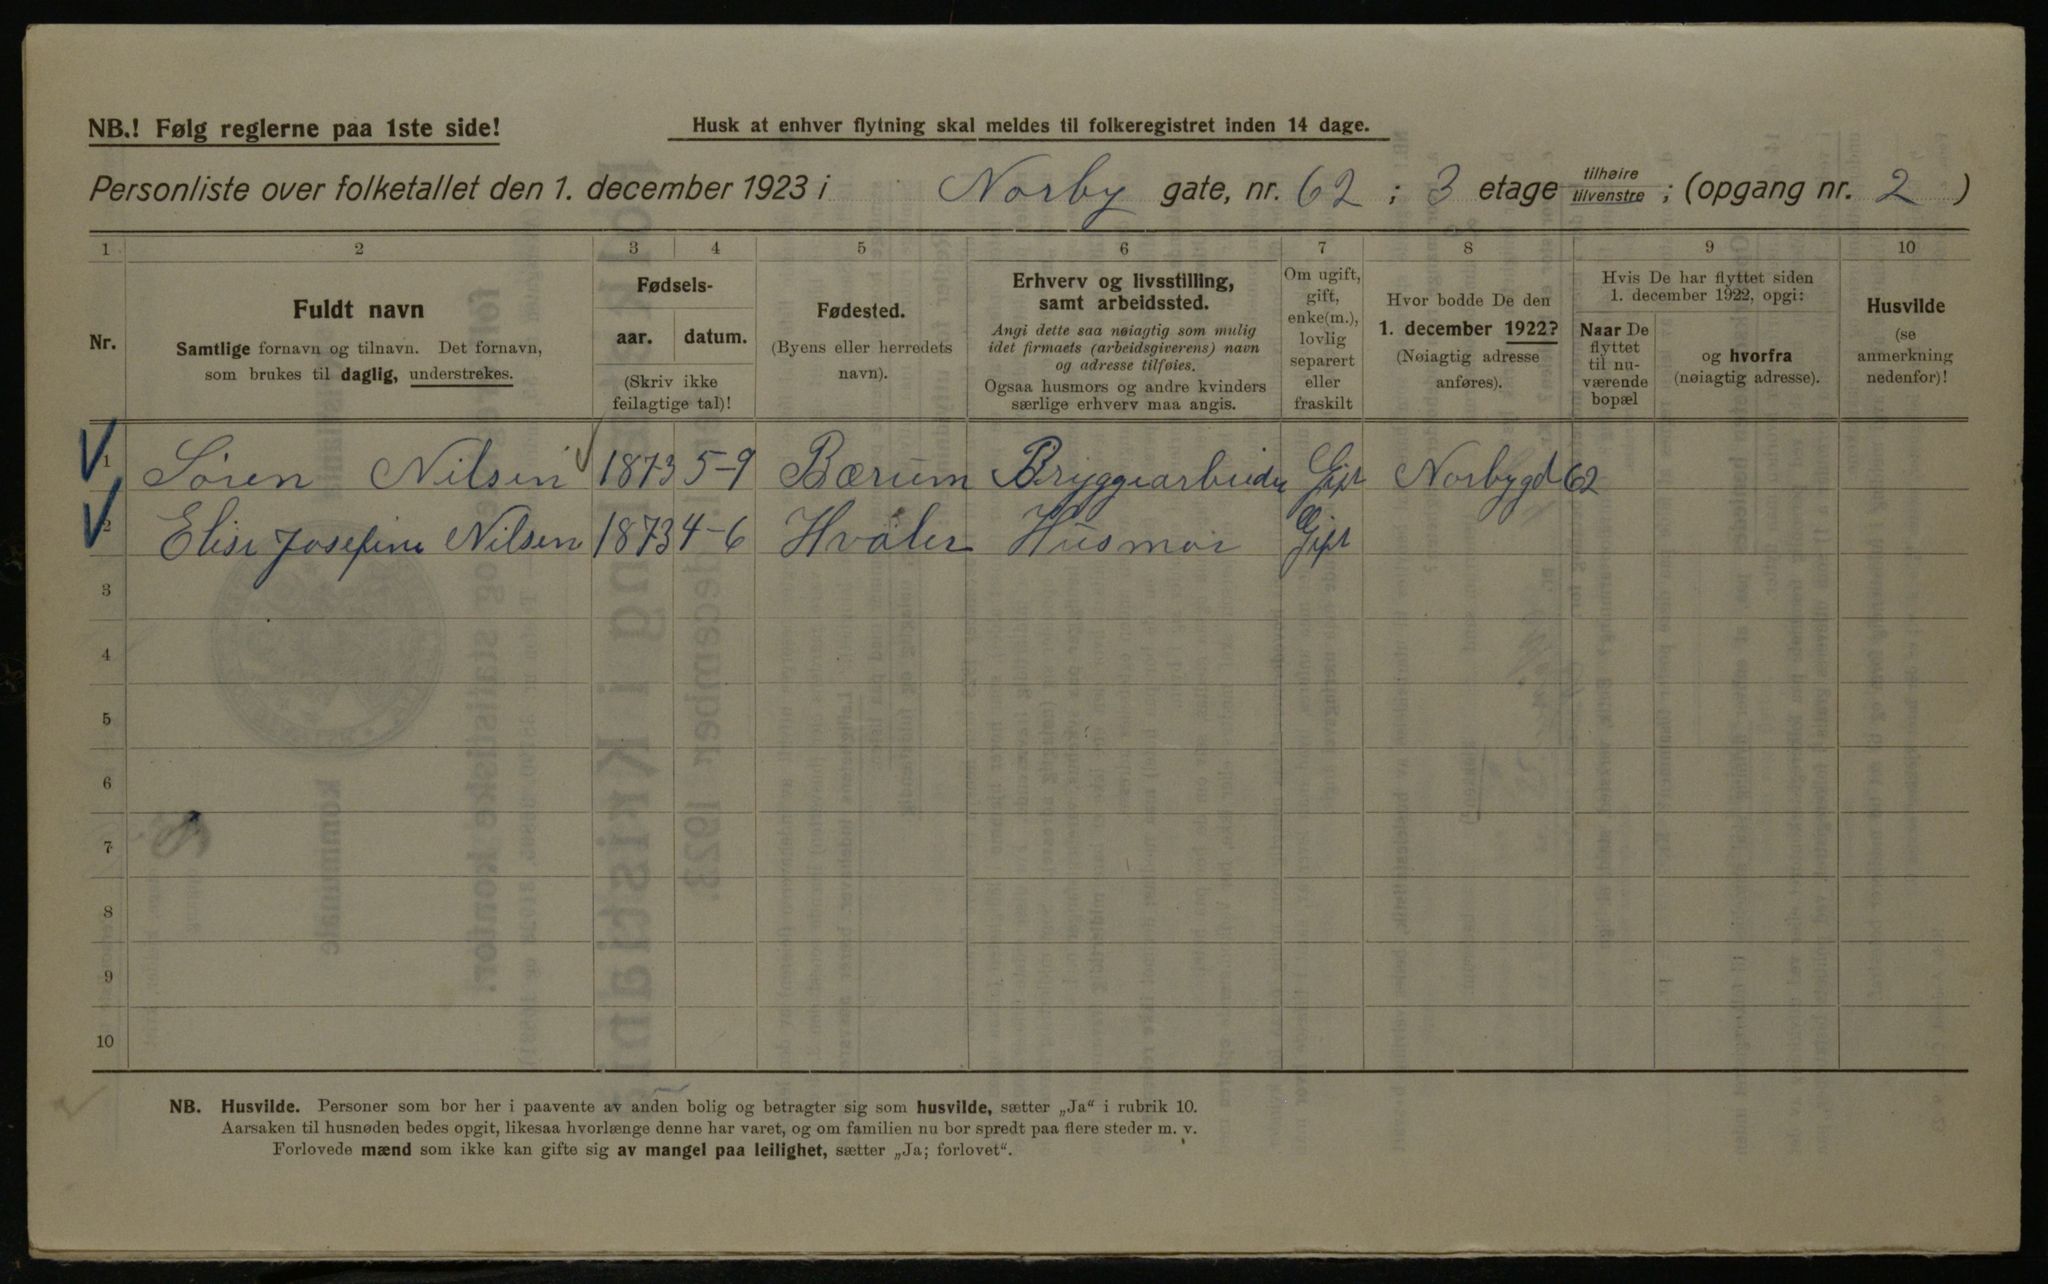 NB.! Følg reglerne paa 1ste side!
Husk at enhver flytning skal meldes til folkeregistret inden 14 dage.
Personliste over folketallet den 1. december 1923 i Norby gate, nr. 62 ; 3 etage tilhøire tilvenstre ; (opgang nr. 2 )
1 2 3 4 5 6 7 8 9 10
Nr.
Fuldt navn
Samtlige fornavn og tilnavn. Det fornavn,
som brukes til daglig, understrekes.
Fødsels-
aar. datum.
(Skriv ikke
feilagtige tal)!
Fødested.
(Byens eller herredets
navn).
Erhverv og livsstilling,
samt arbeidssted.
Angi dette saa nøiagtig som mulig
idet firmaets (arbeidsgiverens) navn
og adresse tilføies.
Ogsaa husmors og andre kvinders
særlige erhverv maa angis.
Om ugift,
gift,
enke(m.),
lovlig
separert
eller
fraskilt
Hvor bodde De den
1. december 1922?
(Nøiagtig adresse
anføres).
Hvis De har flyttet siden
1. december 1922, opgi:
Naar De
flyttet
til nu-
værende
bopæl
og hvorfra
(nøiagtig adresse).
Husvilde
(se
anmerkning
nedenfor)!
1 Søren Nilsen 1873 5-9 Bærum Bryggearbeider Gift Norbygd 62
2 Elise Josefine Nilsen 1873 4-6 Hvaler Husmor Gift
3
4
5
6
7
8
9
10
NB. Husvilde. Personer som bor her i paavente av anden bolig og betragter sig som husvilde, sætter „Ja“ i rubrik 10.
Aarsaken til husnøden bedes opgit, likesaa hvorlænge denne har varet, og om familien nu bor spredt paa flere steder m. v.
Forlovede mænd som ikke kan gifte sig av mangel paa leilighet, sætter „Ja; forlovet“.